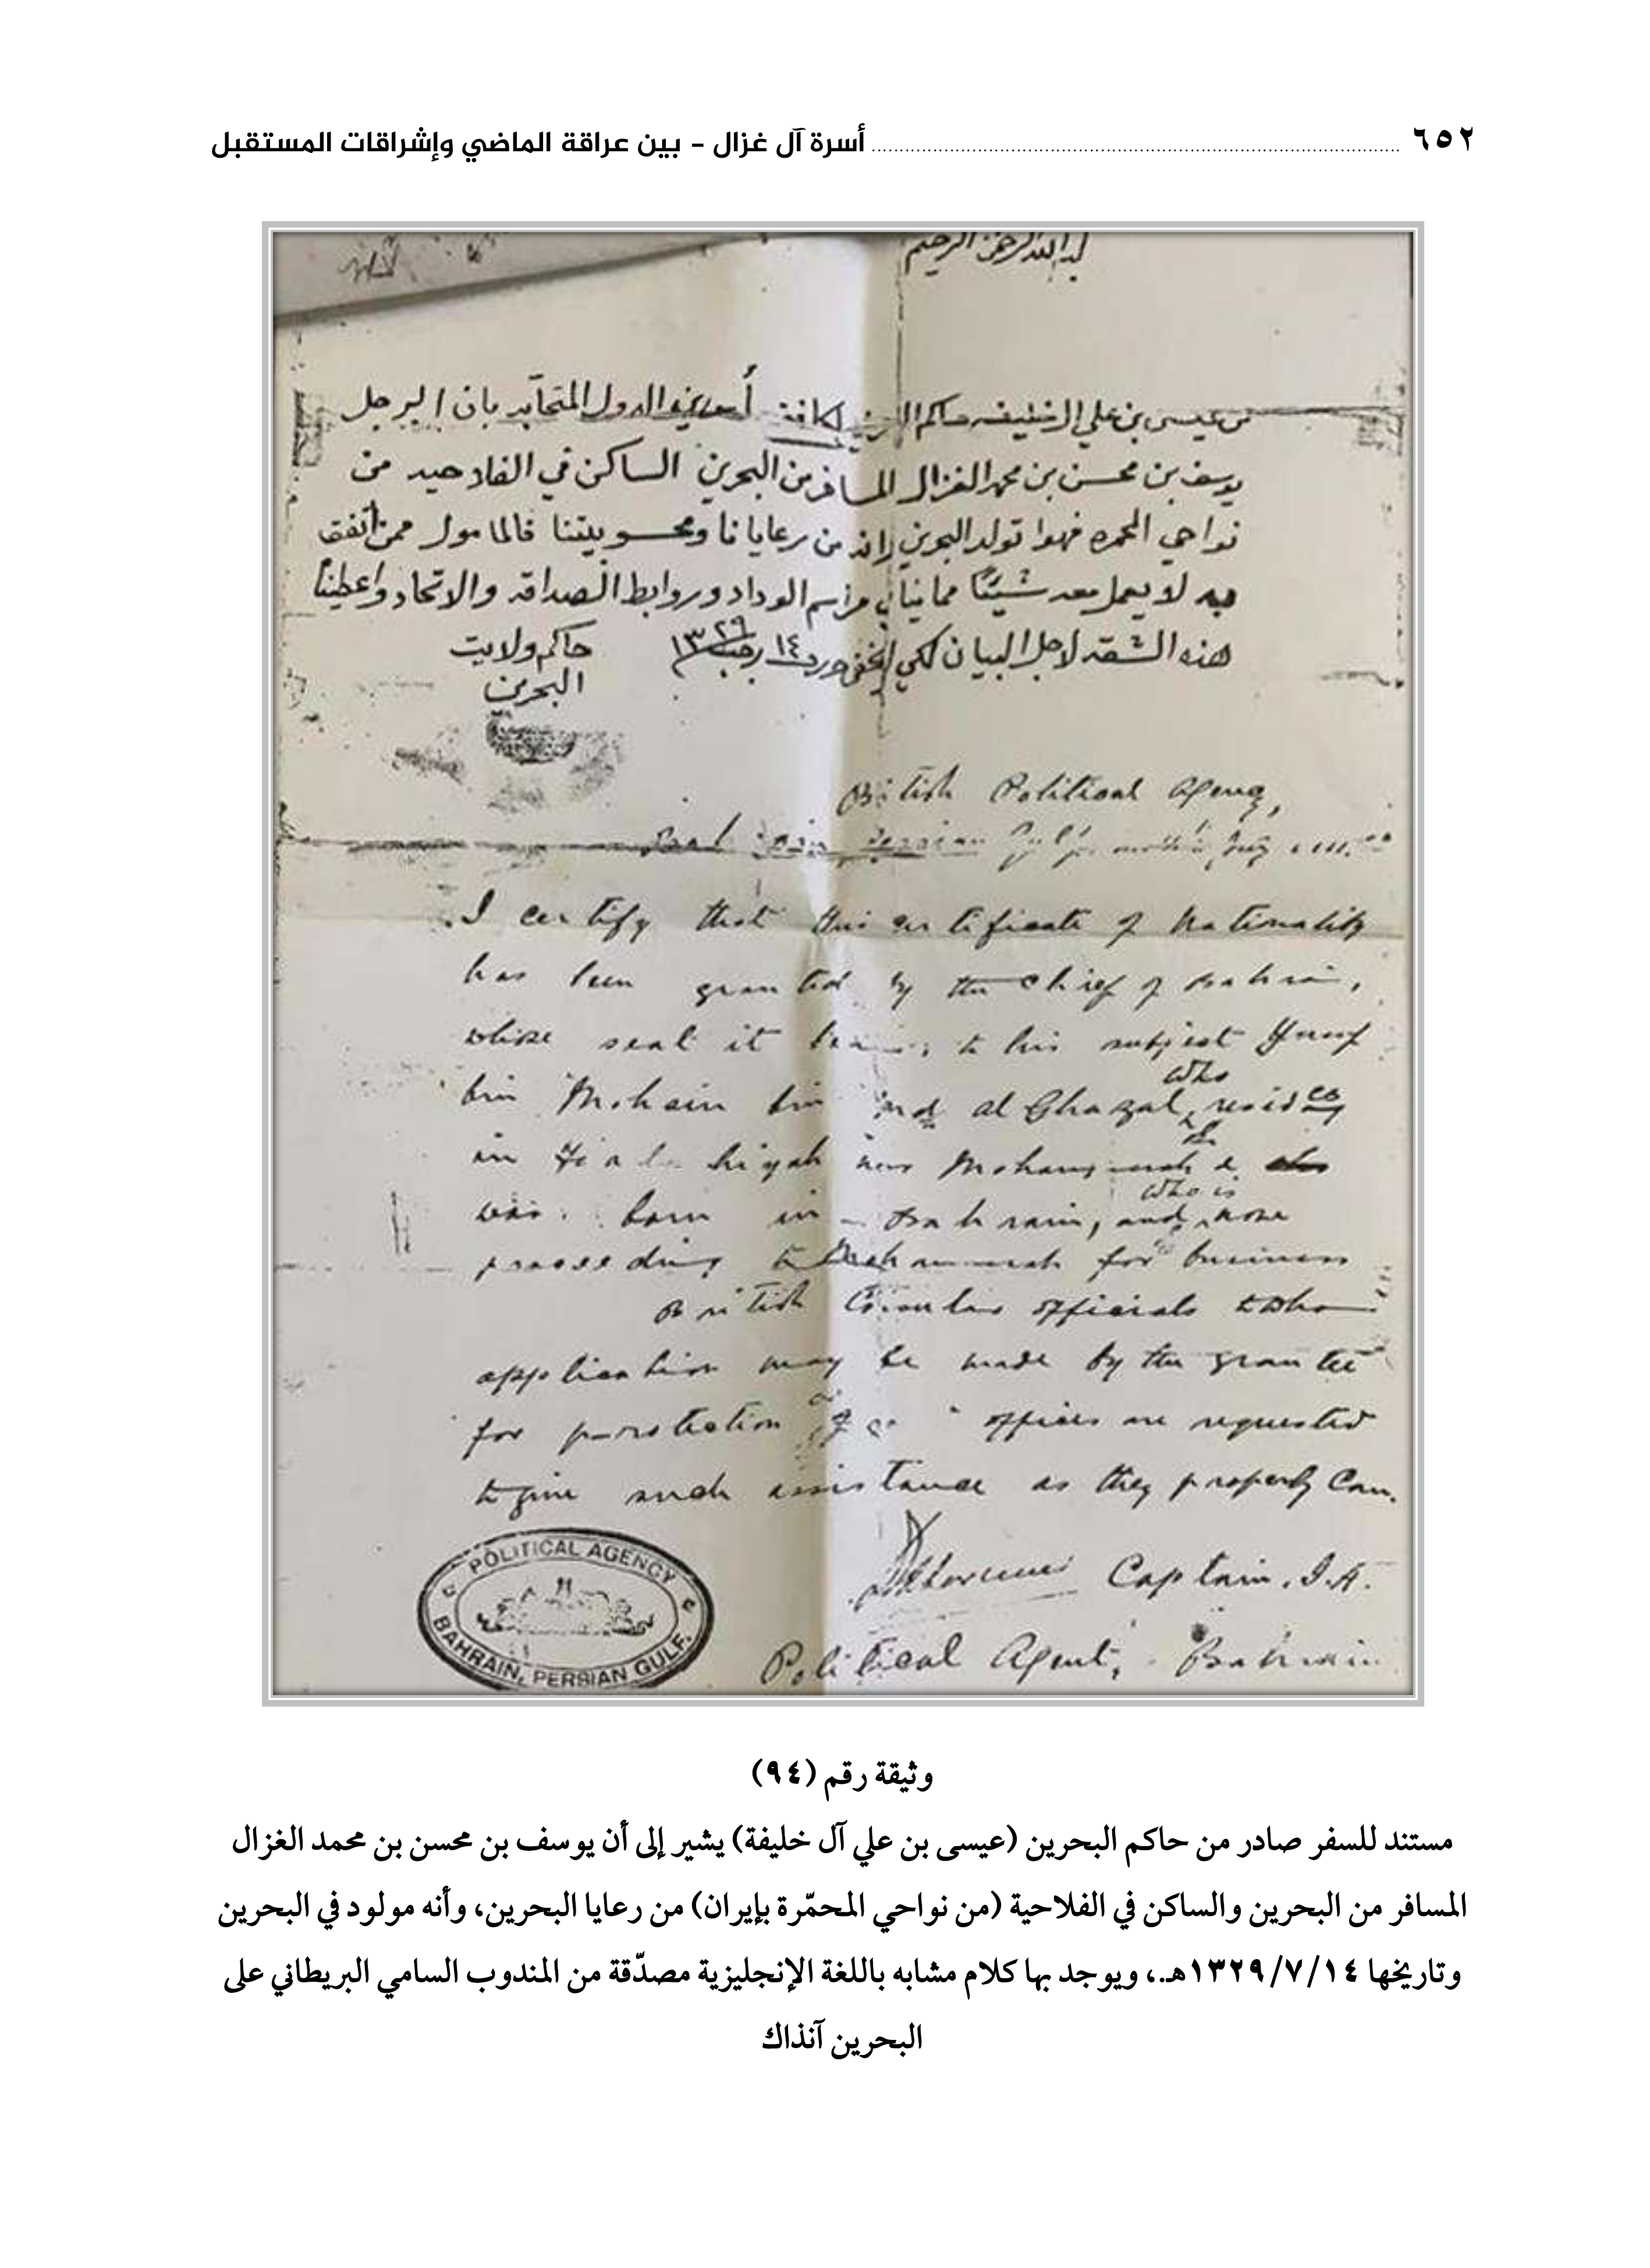 ٦٥٢ أسرة آل غزال - بين عراقة الماضي وإشراقات المستقبل
بسم الله الرحمن الرحيم
من عيسى بن علي ال خليفه حاكم البحرين لكافة الدول المتحابه بان الرجل
يوسف بن محسن بن محمد الغزال المسافر من البحرين الساكن في الفلاحيه من
نواحي المحمره فهوا تولد البحرين وانه من رعايانا ومحسوبيتنا فالمامول ممن اتفق
به لا يعمل معه شيئًا مما ينافي مراسم الوداد وروابط الصداقه والاتحاد واعطيناه
هذه الشقه لاجل البيان لكي لا يخفى ١٤ رجب ١٣٢٩
حاكم ولايت
البحرين
British Political Agency,
Persian Gulf
I certify that this certificate of Nationality
has been granted by the Chief of Bahrain,
whose seal it bears, to his subject Yusuf
bin Mohsin bin Md al Ghazal, who resides
in near Mohammerah &
was born in Bahrain, and who is now
proceeding to Mohammerah for business
British Consular officials to whom
application may be made by the grantee
for protection or offices are requested
to give such assistance as they properly can.
Captain, I.A.
Political Agent, Bahrain
POLITICAL AGENCY
BAHRAIN, PERSIAN GULF.
وثيقة رقم (٩٤)
مستند للسفر صادر من حاكم البحرين (عيسى بن علي آل خليفة) يشير إلى أن يوسف بن محسن بن محمد الغزال
المسافر من البحرين والساكن في الفلاحية (من نواحي المحمّرة بإيران) من رعايا البحرين، وأنه مولود في البحرين
وتاريخها ١٣٢٩/٧/١٤هـ.، ويوجد بها كلام مشابه باللغة الإنجليزية مصدّقة من المندوب السامي البريطاني على
البحرين آنذاك